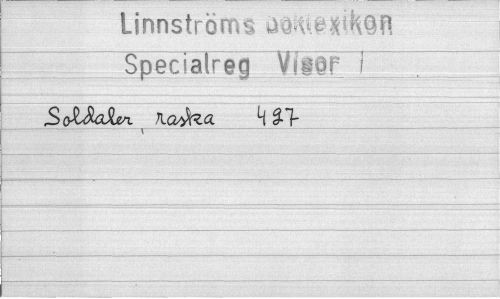 Linnströms Boklexikon
Specialreg Visor I
Soldater, raska 497